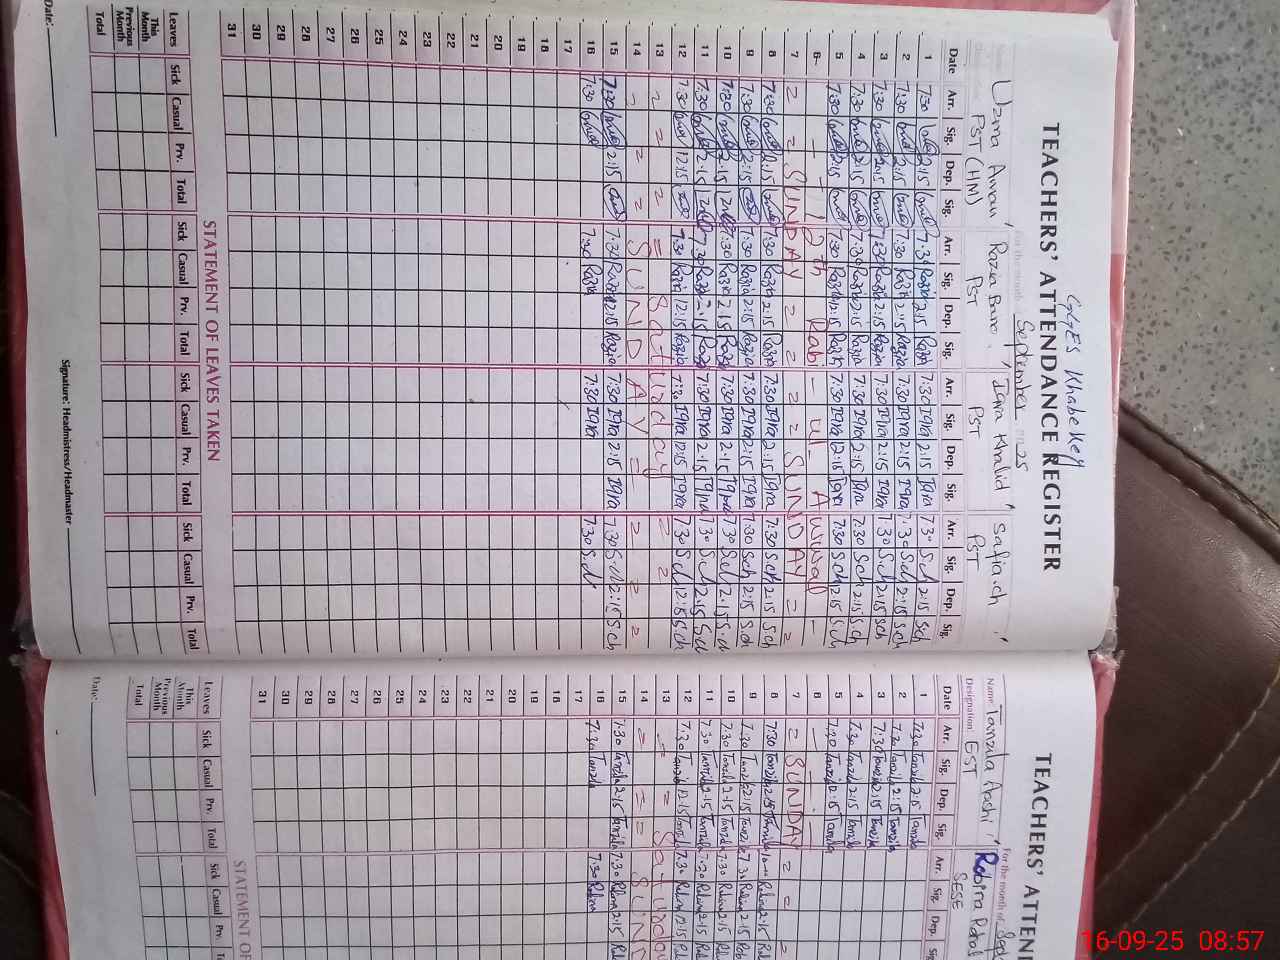 GGES Khabe Key
TEACHERS' ATTENDANCE REGISTER
For the month September 2025
Uzma Awan, Razia Bano, Iqra Khalid, Safia.ch,
PST (HM) PST PST PST
Date Arr. Sig. Dep. Sig. Arr. Sig. Dep. Sig. Arr. Sig. Dep. Sig. Arr. Sig. Dep. Sig.
1 7:30 2:15 7:30 Razia 2:15 Razia 7:30 Iqra 2:15 Iqra 7:30 S.ch 2:15 S.ch
2 7:30 2:15 7:30 Razia 2:15 Razia 7:30 Iqra 2:15 Iqra 7:30 S.ch 2:15 S.ch
3 7:30 2:15 7:30 Razia 2:15 Razia 7:30 Iqra 2:15 Iqra 7:30 S.ch 2:15 S.ch
4 7:30 2:15 7:30 Razia 2:15 Razia 7:30 Iqra 2:15 Iqra 7:30 S.ch 2:15 S.ch
5 7:30 2:15 7:30 Razia 12:15 Razia 7:30 Iqra 12:15 Iqra 7:30 S.ch 2:15 S.ch
6 12th Rabi - ul - Awwal -
7 = = SUNDAY = = = SUNDAY = =
8 7:30 2:15 7:30 Razia 2:15 Razia 7:30 Iqra 2:15 Iqra 7:30 S.ch 2:15 S.ch
9 7:30 2:15 7:30 Razia 2:15 Razia 7:30 Iqra 2:15 Iqra 7:30 S.ch 2:15 S.ch
10 7:30 2:15 7:30 Razia 2:15 Razia 7:30 Iqra 2:15 Iqra 7:30 S.ch 2:15 S.ch
11 7:30 2:15 7:30 Razia 2:15 Razia 7:30 Iqra 2:15 Iqra 7:30 S.ch 2:15 S.ch
12 7:30 12:15 7:30 Razia 12:15 Razia 7:30 Iqra 12:15 Iqra 7:30 S.ch 12:15 S.ch
13 = = = = Saturday = =
14 = = = SUNDAY = = = =
15 7:30 2:15 7:30 Razia 2:15 Razia 7:30 Iqra 2:15 Iqra 7:30 S.ch 2:15 S.ch
16 7:30 7:30 Razia 7:30 Iqra 7:30 S.ch
17
18
19
20
21
22
23
24
25
26
27
28
29
30
31
STATEMENT OF LEAVES TAKEN
Leaves Sick Casual Prv. Total Sick Casual Prv. Total Sick Casual Prv. Total Sick Casual Prv. Total
This Month
Previous Month
Total
Date: Signature: Headmistress/Headmaster
TEACHERS' ATTEN
For the month of Sep
Name: Tanzila Arashi, Robina
Designation: EST SESE
Date Arr. Sig. Dep. Sig. Arr. Sig. Dep. Sig.
1 7:30 Tanzila 2:15 Tanzila
2 7:30 Tanzila 2:15 Tanzila
3 7:30 Tanzila 2:15 Tanzila
4 7:30 Tanzila 2:15 Tanzila
5 7:30 Tanzila 12:15 Tanzila
6
7 = SUNDAY = = =
8 7:30 Tanzila 2:15 Tanzila Robina 2:15
9 7:30 Tanzila 2:15 Tanzila 7:30 Robina 2:15
10 7:30 Tanzila 2:15 Tanzila 7:30 Robina 2:15
11 7:30 Tanzila 2:15 Tanzila 7:30 Robina 2:15
12 7:30 Tanzila 12:15 Tanzila 7:30 Robina 12:15
13 = = Saturday
14 = = = SUND
15 7:30 Tanzila 2:15 Tanzila 7:30 Robina 2:15
16 7:30 Tanzila 7:30 Robina
17
18
19
20
21
22
23
24
25
26
27
28
29
30
31
STATEMENT OF
Leaves Sick Casual Prv. Total Sick Casual Prv.
This Month
Previous Month
Total
Date:
16-09-25 08:57